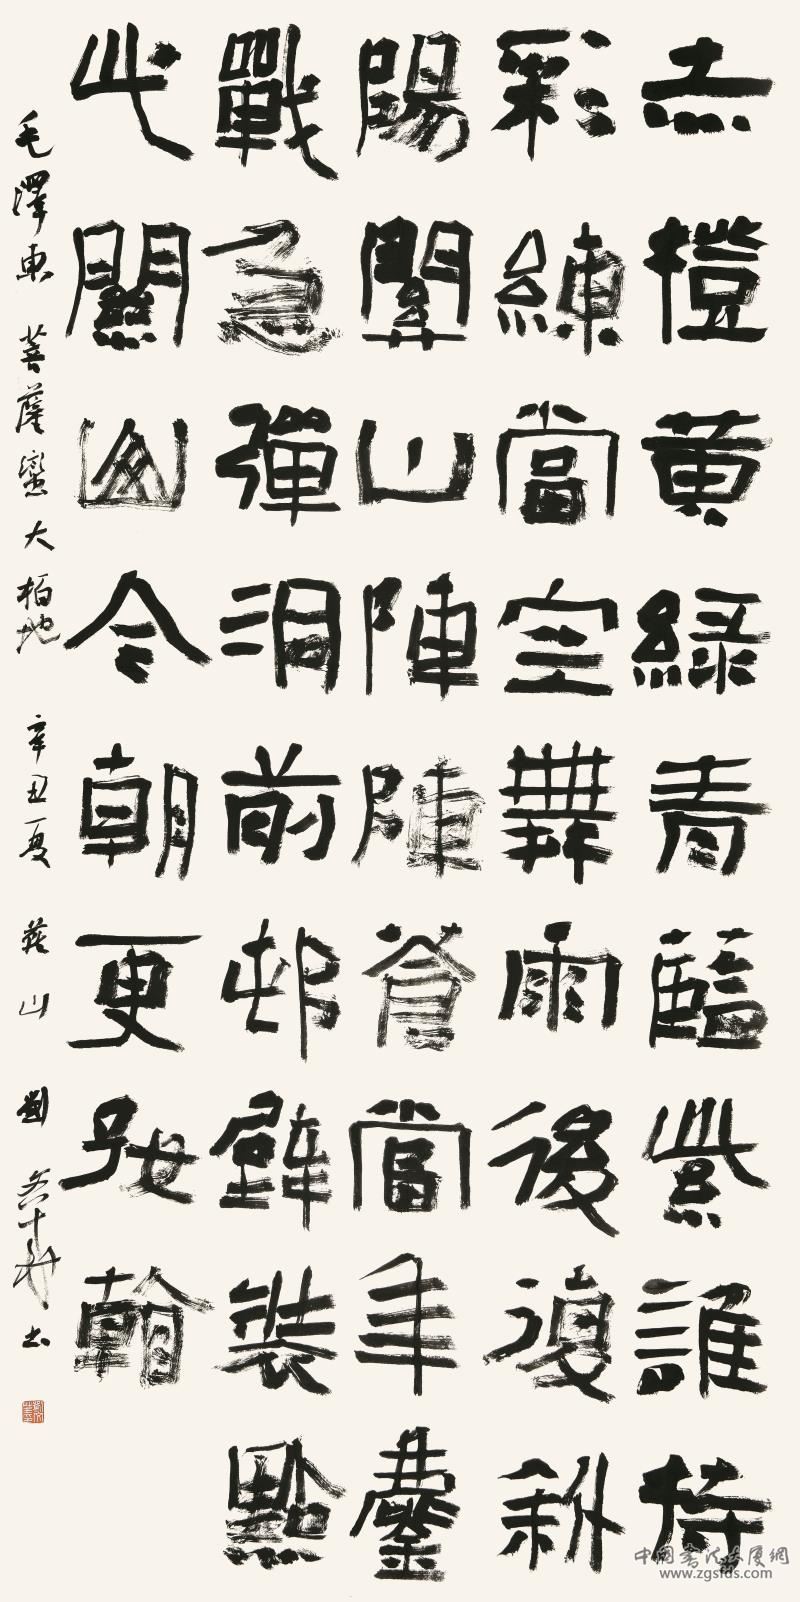 赤橙黄綠青藍紫誰持
彩練當空舞雨後復斜
陽關山陣陣蒼當年鏖
戰急彈洞前邨壁裝點
此關山今朝更好看
毛澤東 菩薩蠻 大柏地 辛丑夏 山 劉 书
中国書法大厦網
www.zgsfds.com